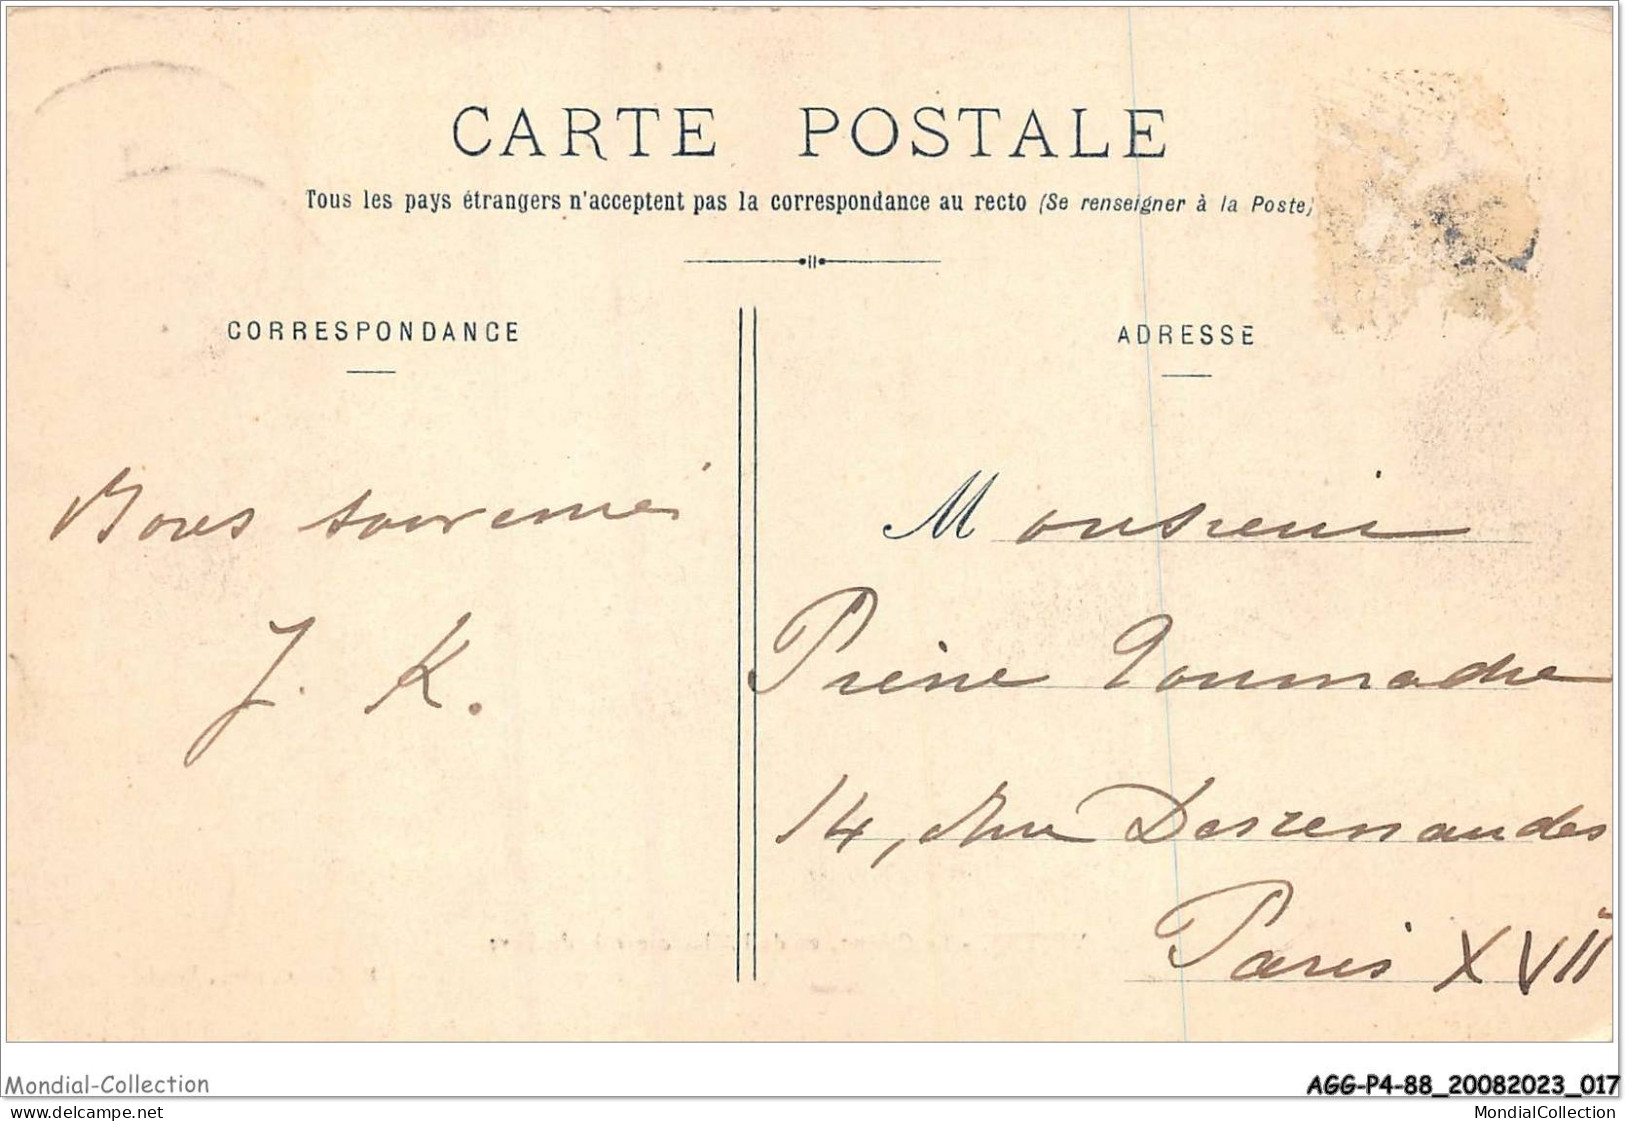 CARTE POSTALE
Tous les pays étrangers n'acceptent pas la correspondance au recto (Se renseigner à la Poste)
CORRESPONDANCE
ADRESSE
Bons souvenirs
J. K.
Monsieur
Pierre Tourmadre
14, Rue Desrenaudes
Paris XVII
Mondial-Collection
AGG-P4-88_20082023_017
delcampe.net
MondialCollection